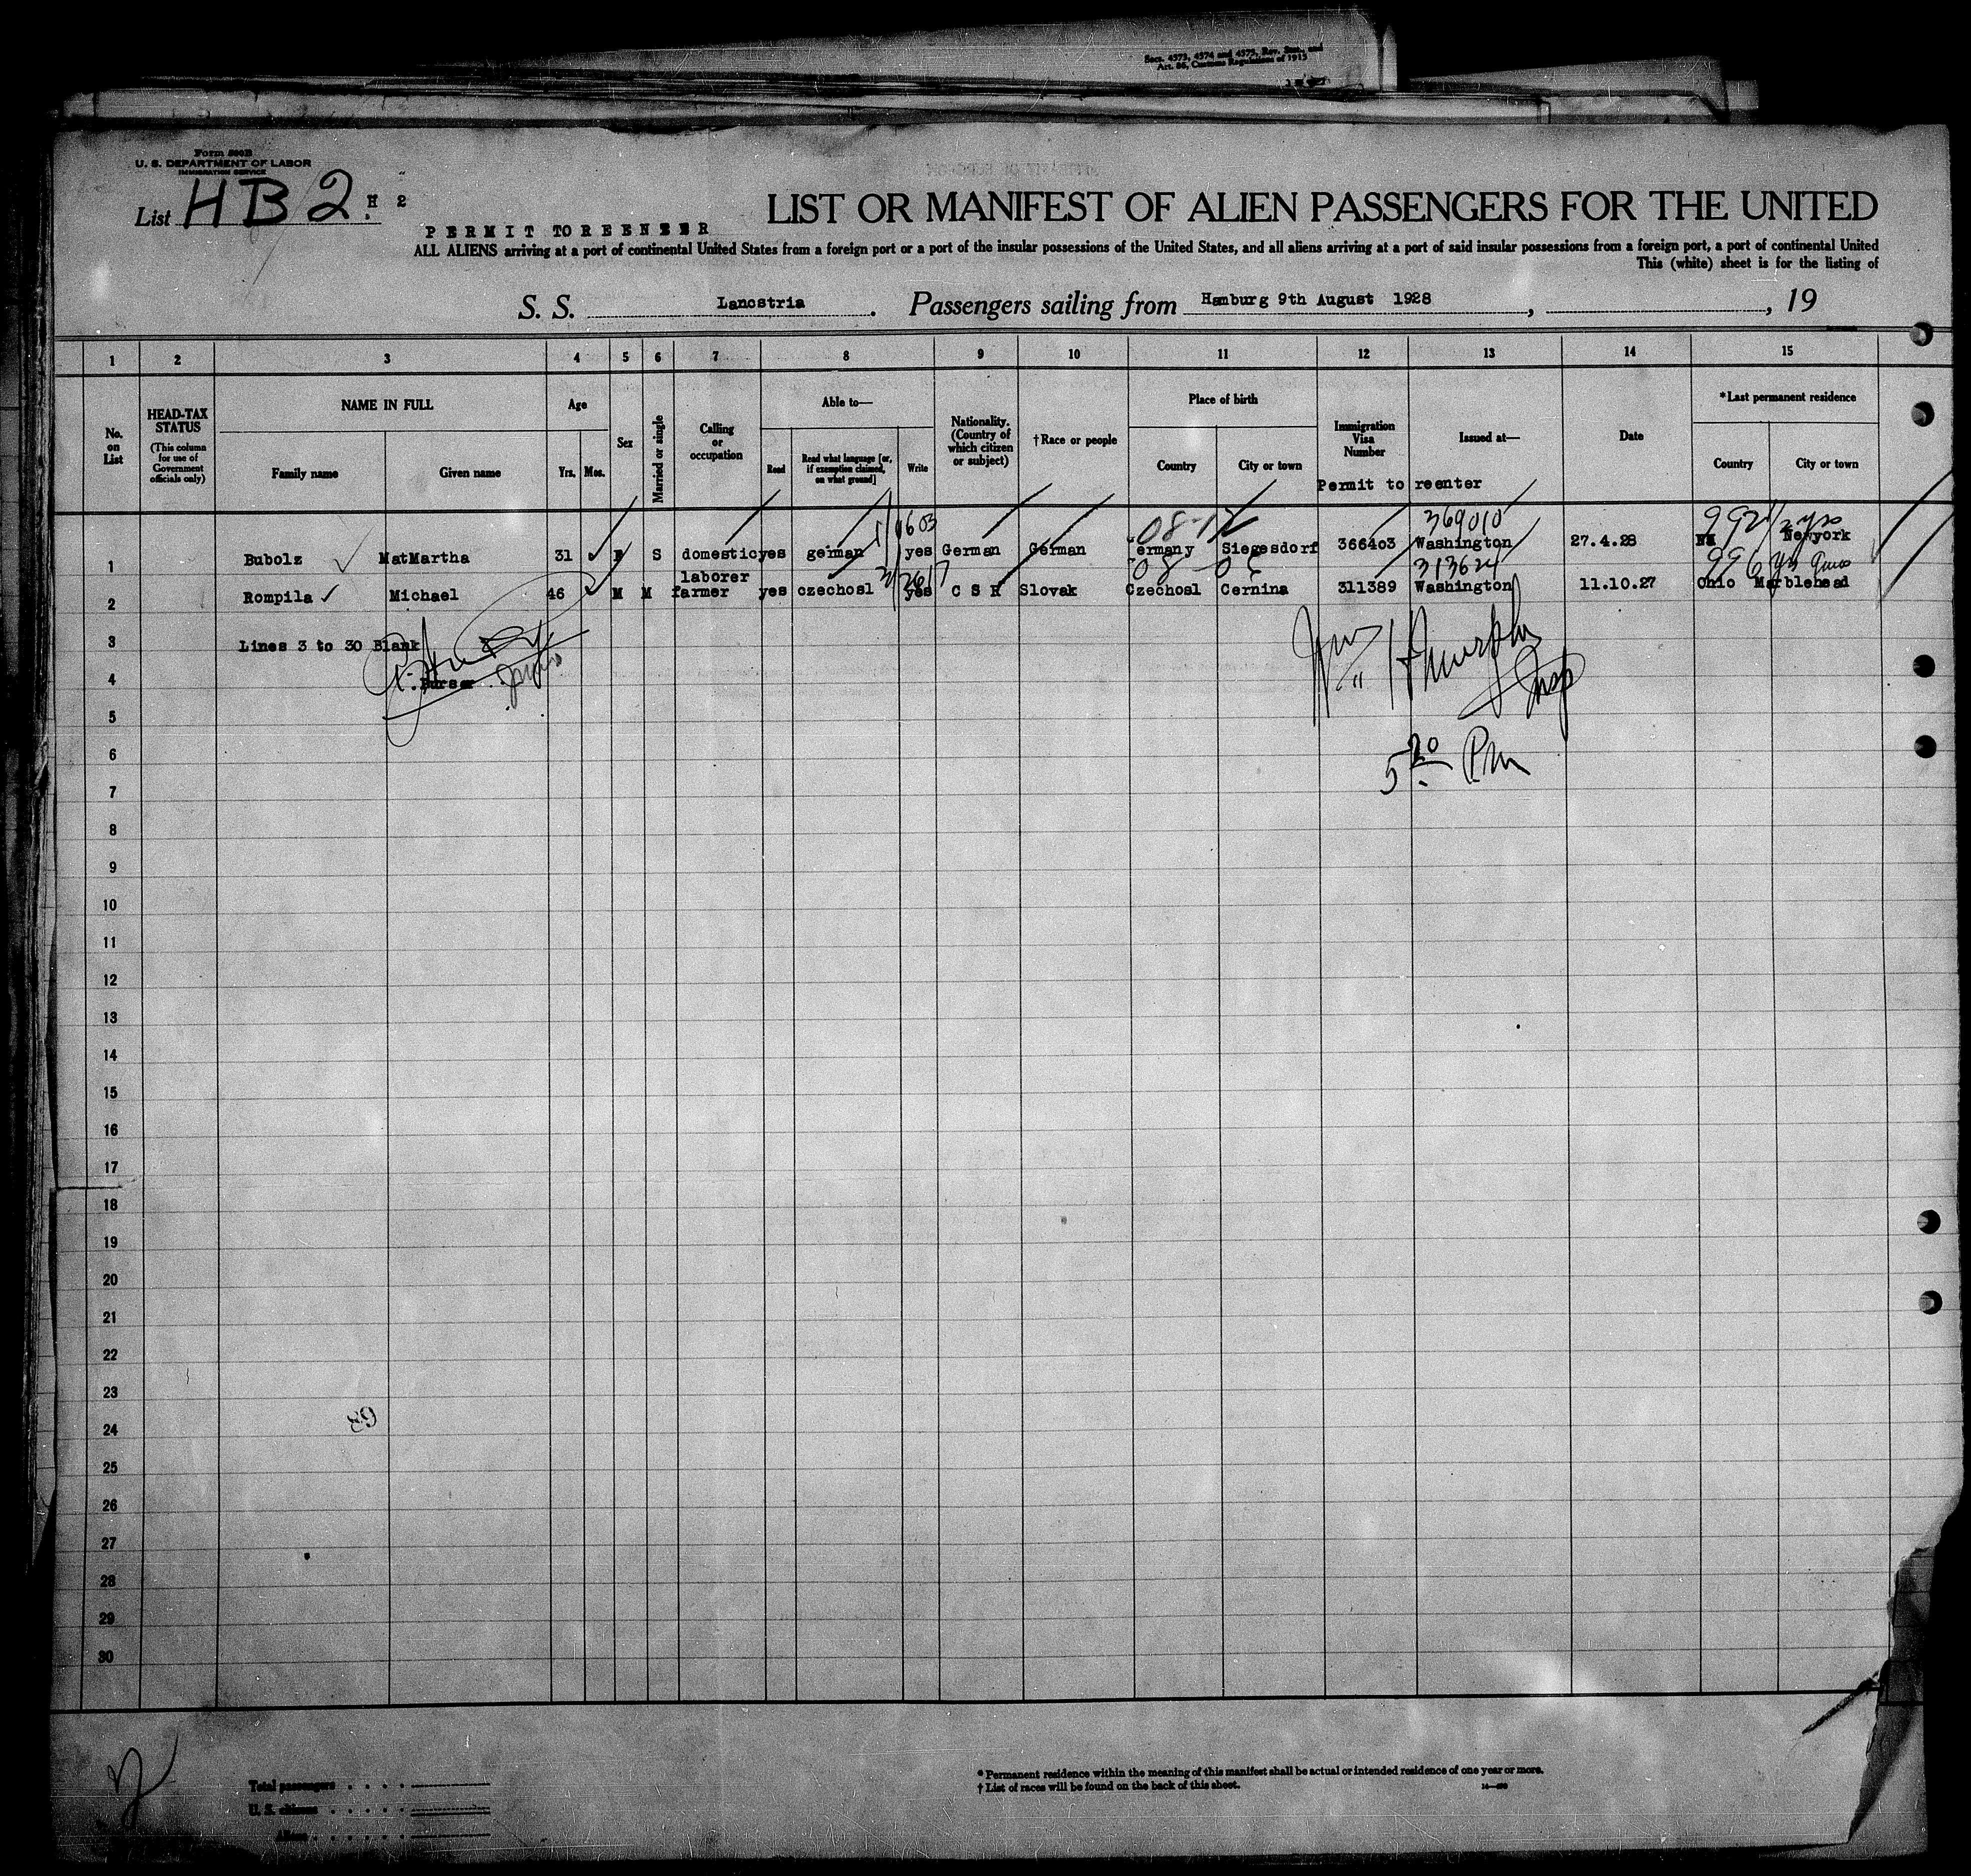 Secs. 4573, 4574 and 4575, Rev. Stat., and
Art. 86, Customs Regulations of 1915
Form 500B
U. S. DEPARTMENT OF LABOR
IMMIGRATION SERVICE
List HB 2 H 2
PERMIT TO REENTER
LIST OR MANIFEST OF ALIEN PASSENGERS FOR THE UNITED
ALL ALIENS arriving at a port of continental United States from a foreign port or a port of the insular possessions of the United States, and all aliens arriving at a port of said insular possessions from a foreign port, a port of continental United
This (white) sheet is for the listing of
S. S. Lancstria. Passengers sailing from Hamburg 9th August 1928, , 19
1 2 3 4 5 6 7 8 9 10 11 12 13 14 15
No. on List
HEAD-TAX STATUS
(This column for use of Government officials only)
NAME IN FULL
Family name Given name
Age
Yrs. Mos.
Sex
Married or single
Calling or occupation
Able to—
Read
Read what language [or, if exemption claimed, on what ground]
Write
Nationality. (Country of which citizen or subject)
†Race or people
Place of birth
Country City or town
Immigration Visa Number
Issued at—
Date
*Last permanent residence
Country City or town
Permit to reenter
369010
1 Bubolz MatMartha 31 F S domestic yes german yes German German ermany Siegesdorf 366403 Washington 27.4.28 Newyork
laborer 313624
2 Rompila Michael 46 M M farmer yes czechosl yes C S R Slovak Czechosl Cernina 311389 Washington 11.10.27 Ohio Marblehead
3 Lines 3 to 30 Blank
4 Purser
Wm H Murphy
Insp
5
6 5 20 PM
7
8
9
10
11
12
13
14
15
16
17
18
19
20
21
22
23
24
25
26
27
28
29
30
Total passengers
U. S. citizens
Aliens
* Permanent residence within the meaning of this manifest shall be actual or intended residence of one year or more.
† List of races will be found on the back of this sheet.